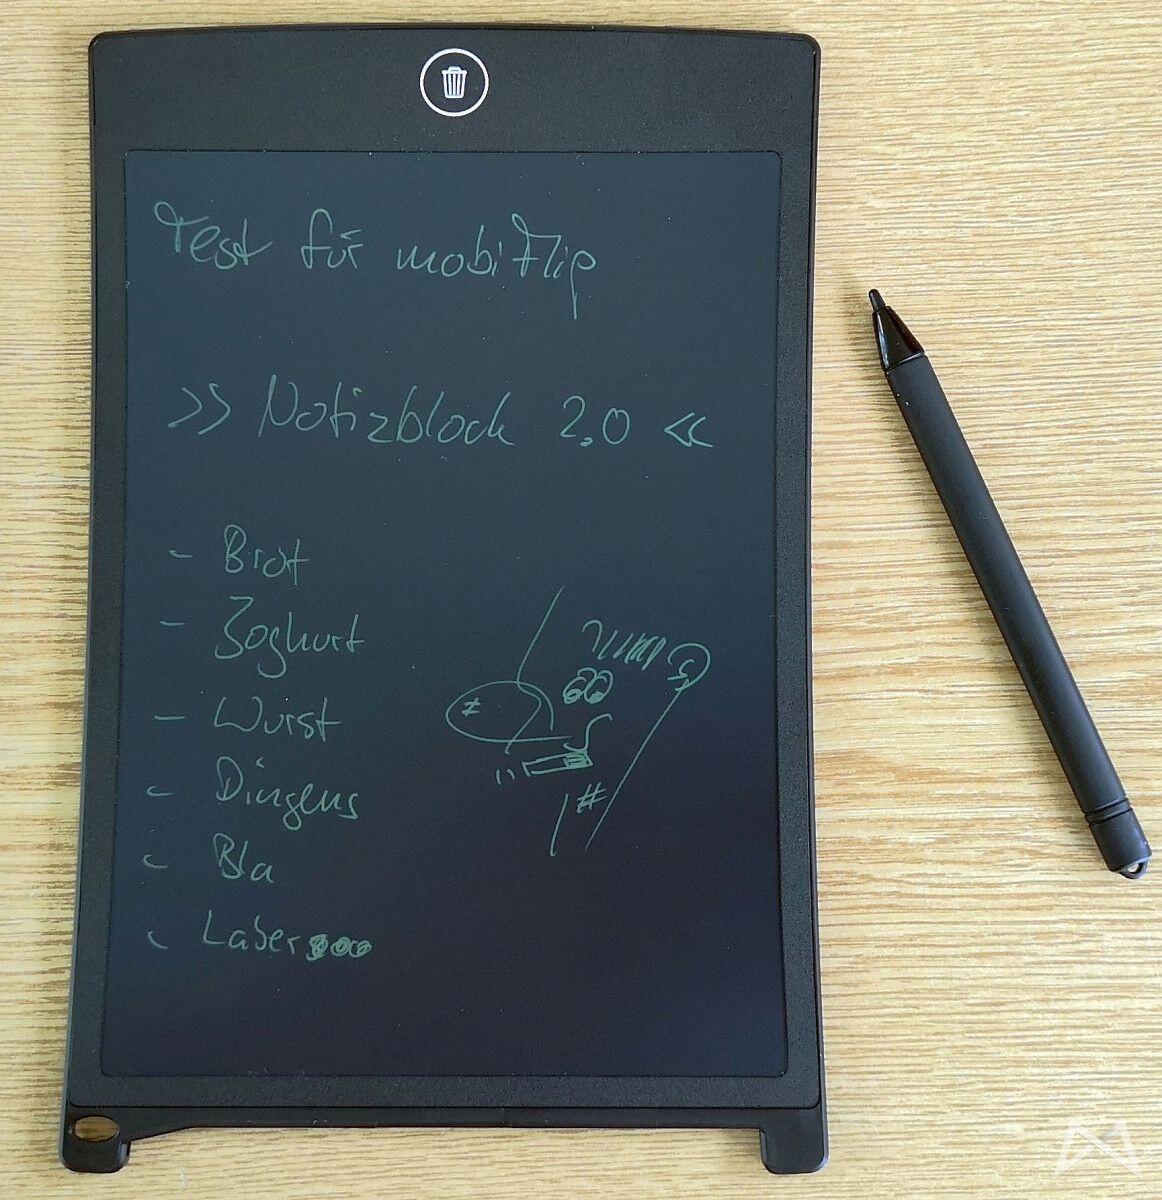 Test für mobiFlip
>> Notizblock 2.0 <<
- Brot
- Joghurt
- Wurst
- Dingens
- Bla
- Laber...
#